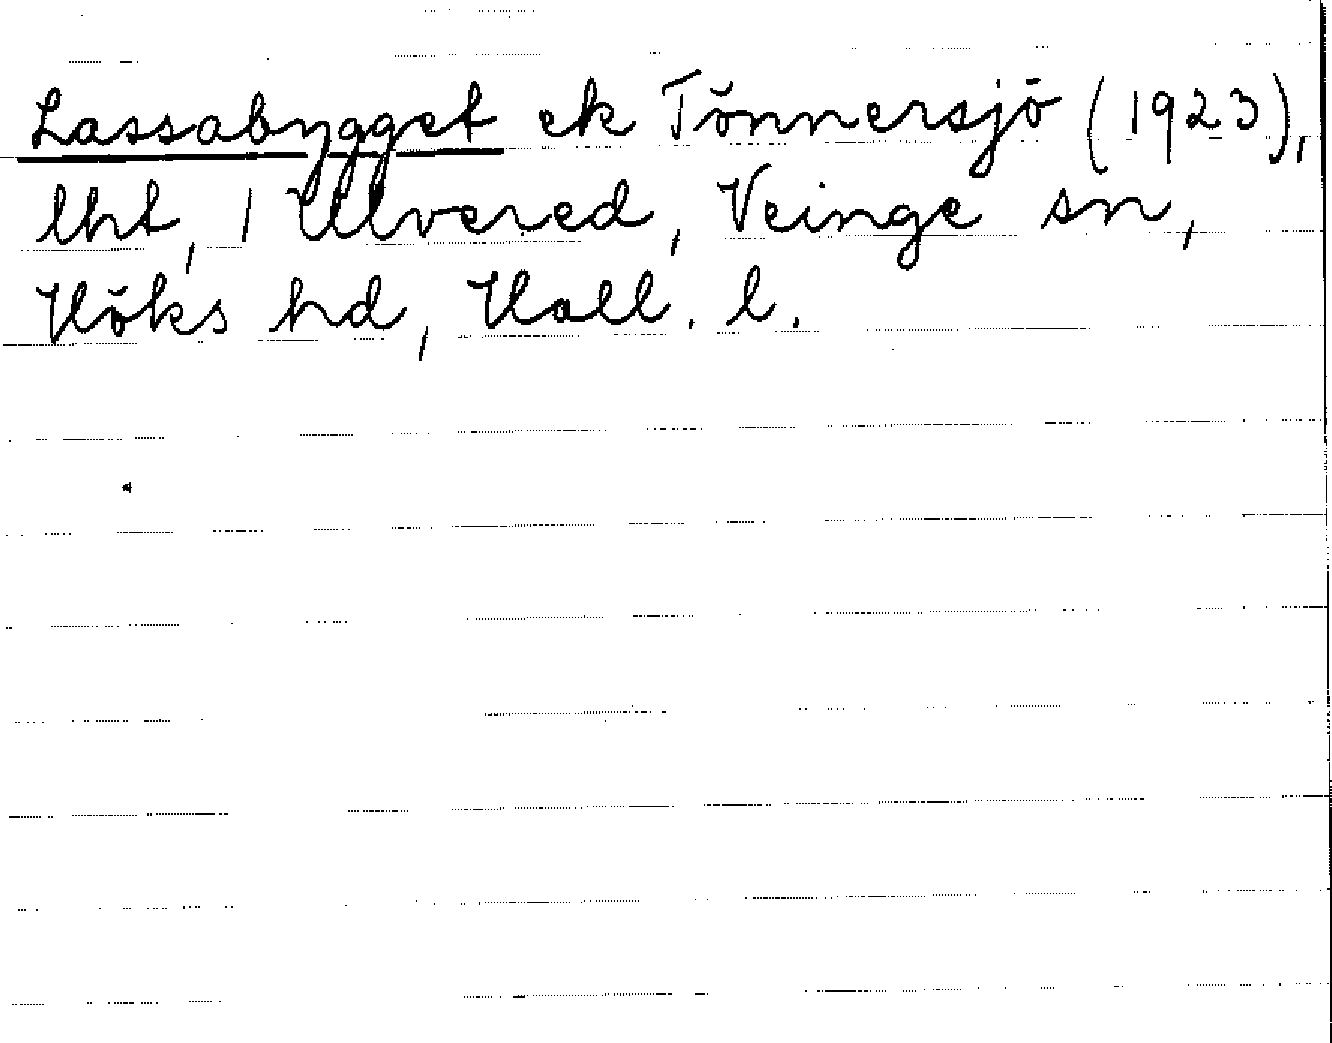 Lassabygget ek Tönnersjö (1923),
lht, 1 Ulvered, Veinge sn,
Höks hd, Hall. l.